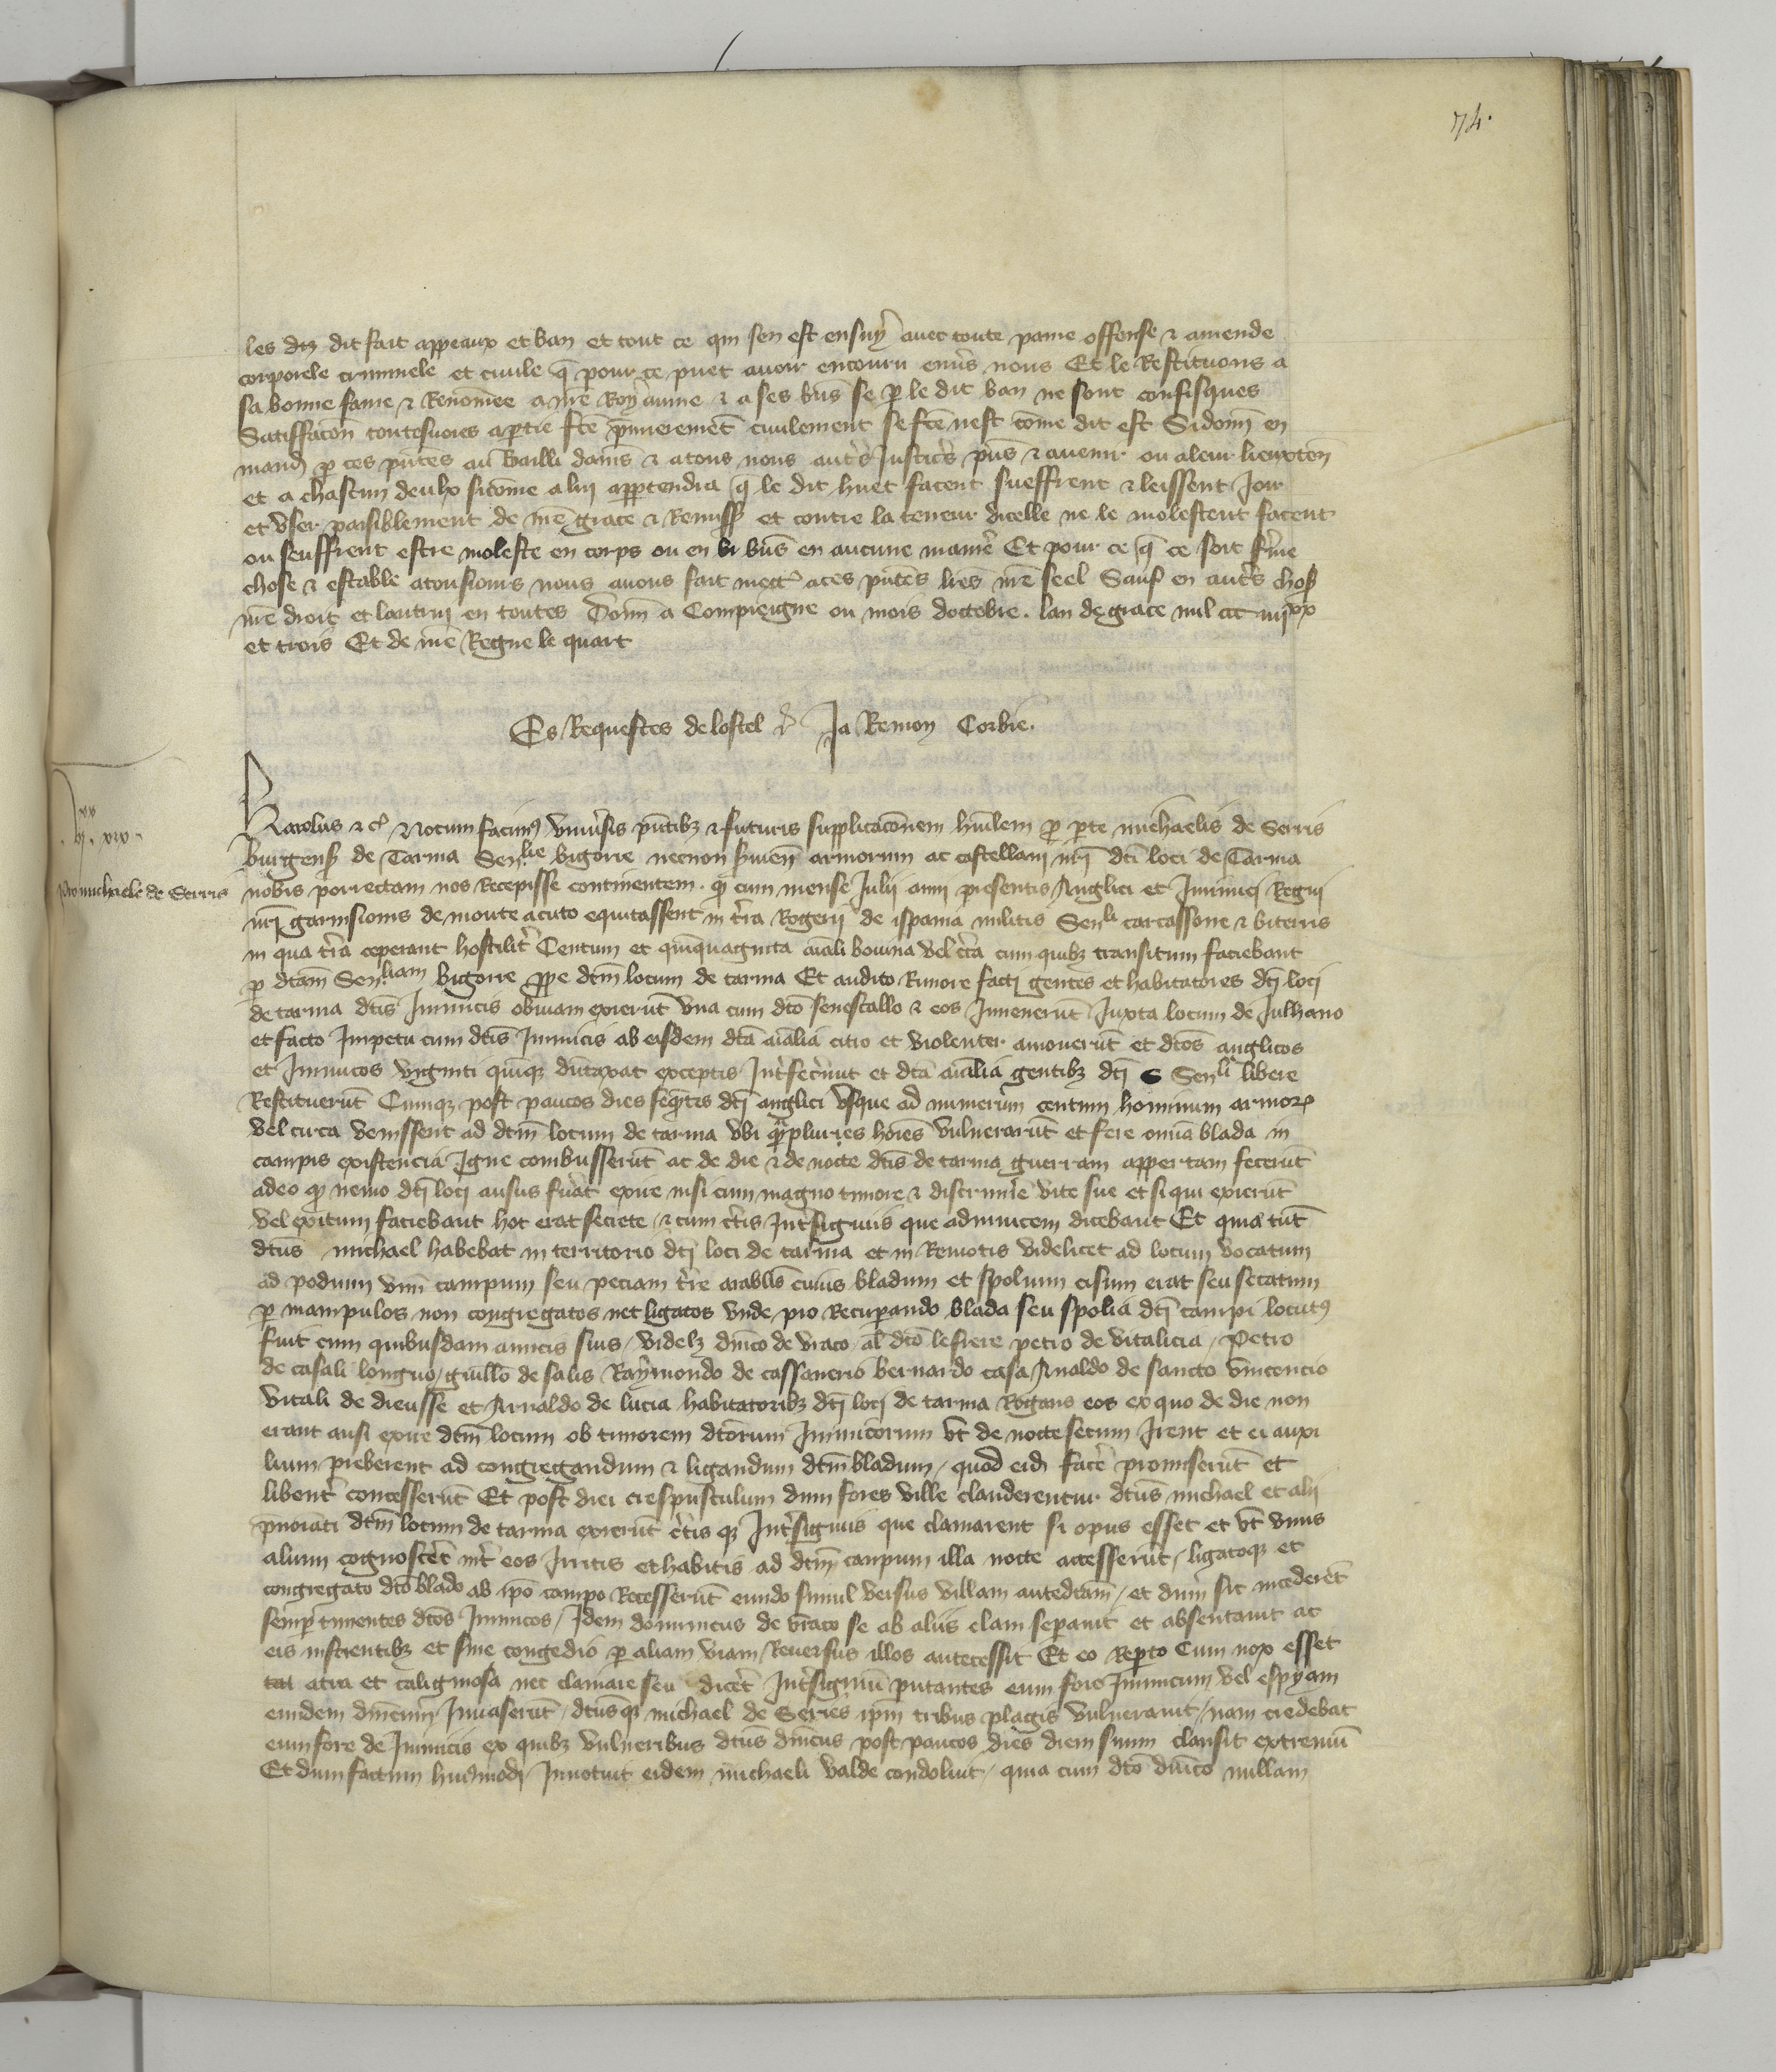 74.
les diz dit fait appeaux et ban et tout ce qui sen est ensuy avec toute paine offense & amende
corporele criminele et civile q̃ pour ce puet avoir encouru env̾s nous Et le Restituons a
sa bonne fame & Renomee a nr̃e Royaume & a ses biẽs se p̱ le dit ban ne sont confisques
Satisfacõn toutesvoies a partie fcẽ p̃mierem̃ent civilement se fcẽ nest cõme dit est Si donñ en
mand̃ p̱ ces pñtes au Bailli damiẽs & a tous nous aut̾s Justic̾s pñs & avenir ou a leur lieuxteñ
et a chascun deulx sicõme a luy app̱tendra q̃ le dit huet facent sueffrent & leissent Joir
et user paisiblement de nr̃e grace & Remiss̃ et contre la teneur dicelle ne le molestent facent
ou seuffrent estre moleste en corps ou en biẽs en aucune manie̾ Et pour ce q̃ ce soit f̾me
chose & estable a tousiours nous avons fait mett̾ a ces pñtes lr̃es nr̃e seel Sauf en aut̾s chos̃
nr̃e droit et lautruy en toutes Donñ a Compieigne ou mois doctobre. lan de grace mil ccc iiijxx
et trois Et de nr̃e Regne le quart
Es Requestes de lostel Ja Remon Corbie.
xx
ij. xiv
Pro michaele de Serris
Karolus &c̾ Notum facim9 univ̾sis pñtibz & futuris supplicacõnem huĩlem p̱ parte michaelis de Serris
burgens̃ de Tarma Senlie bigorre necnon s̾vieñ armorum ac castellani nr̃i dc̃i loci de Tarma
nobis porrectam nos Recepisse continentem. q̾ cum mense Julii anni presentis Anglici et Inimici Regni
nr̃i garnisionis de monte acuto equitassent in t̾ra Rogerii de ispania militis Senli carcassone & biterris
in qua t̾ra ceperant hostilit̾ Centum et quinquaginta aĩalia bovina vel c̾ca cum quibz transitum faciebant
p̱ dc̃am Senliam bigorre p̱pe dc̃m locum de tarma Et audito Rumore facti gentes et habitatores dc̃i loci
de tarma dc̃is Inimicis obviam exierũt una cum dc̃o senescallo & eos Invenerũt Juxta locum de Julhano
et facto Impetu cum dc̃is Inimicis ab eisdem dc̃a aĩalia citio et violenter amoverũt et dc̃os anglicos
et Inimicos viginti quinqz dũtaxat exceptis Int̾fec̾unt et dc̃a aĩalia gentibz dc̃i Senli libere
Restituerũt Cumqz post paucos dies seq̃ntes dc̃i anglici usque ad numerum centum hominum armorꝝ
vel circa venissent ad dc̃m locum de tarma ubi q̃mpluries hoĩes vulnerarũt et fere om̃ia blada in
campis existencia Igne combusserũt ac de die & de nocte dc̃is de tarma guerram appertam fecerũt
adeo q̾ nemo dc̃i loci ausus fu̾at exire nisi cum magno timore & discrimĩe vite sue et si qui exierũt
vel exitum faciebant hoc erat secrete & cum c̾tis Int̾signiis que adinvicem dicebant Et quia tũc
dc̃us michael habebat in territorio dc̃i loci de tarma et in Remotis videlicet ad locum vocatum
ad podium unũ campum seu peciam t̾re arablis̃ cuius bladum et spolium cisum erat seu secatum
p̱ manipulos non congregatos nec ligatos unde pro Recup̱ando blada seu spolia dc̃i campi locut9
fuit cum quibusdam amicis suis / videlz dñico de vraco, al̃ dc̃o lefrere petro de vitalicia / Petro
de casali longuo / guill̃o de salis Raymondo de cassanerio bernardo casa Arnaldo de sancto vincencio
vitali de dieusse et Arnaldo de lucia habitatoribz dc̃i loci de tarma Rogans eos ex quo de die non
erant ausi exire dc̃m locum ob timorem dc̃orum Inimicorum ut de nocte secum Irent et ei auxi
lium preberent ad congregandum & ligandum dc̃m bladum / quod eid̃ face̾ promiserũt et
libent̾ concesserũt Et post diei crespusculum dum fores ville clauderentur dc̃us michael et alii
p̃noĩati dc̃m locum de tarma exierũt c̾tis qz Int̾signiis que clamarent si opus esset et ut unus
alium cognosc̾et int̾ eos Initis et habitis ad dc̃m campum illa nocte accesserũt / ligatoqz et
congregato dc̃o blado ab ip̃o campo Recesserũt eundo simul versus villam antedc̃am / et dum sic incederẽt
semp̱ timentes dc̃os Inimicos / Idem dominicus de vraco se ab aliis clam sep̱avit et absentavit ac
eis inscientibz et sine congedio p̱ aliam viam Reversus illos antecessit Et eo Rep̱to Cum nox esset
atra et caliginosa nec clamare seu dice̾t Int̾signiũ putantes eum fore Inimicum vel espyam
eundem dñicum Invaserũt / dc̃usqz michael de Serres ip̃m tribus plagis vulneravit / nam credebat
eum fore de Inimicis ex quibz vulneribus dc̃us dñicus post paucos dies diem suum clausit extremũ
Et dum factum hui9modi Innotuit eidem michaeli valde condoluit / quia cum dc̃o dñico nullam